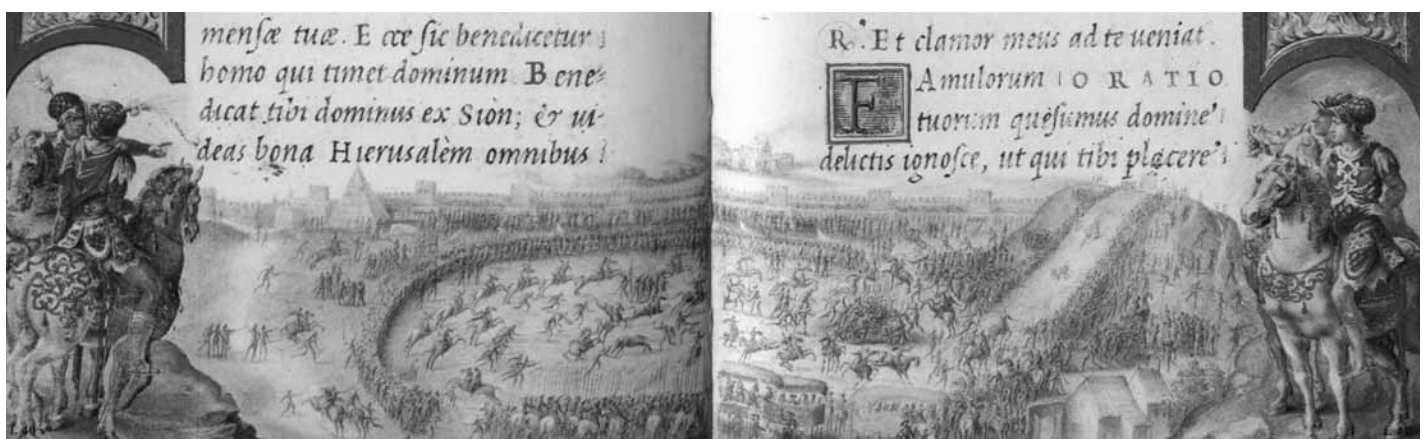 mensæ tuæ. Ecce sic benedicetur
homo qui timet dominum. Bene⸗
dicat tibi dominus ex Sion; & ui-
deas bona Hierusalèm omnibus
R. Et clamor meus ad te ueniat.
FAmulorum ORATIO
tuorum quęsumus domine
delictis ignosce, ut qui tibi placere